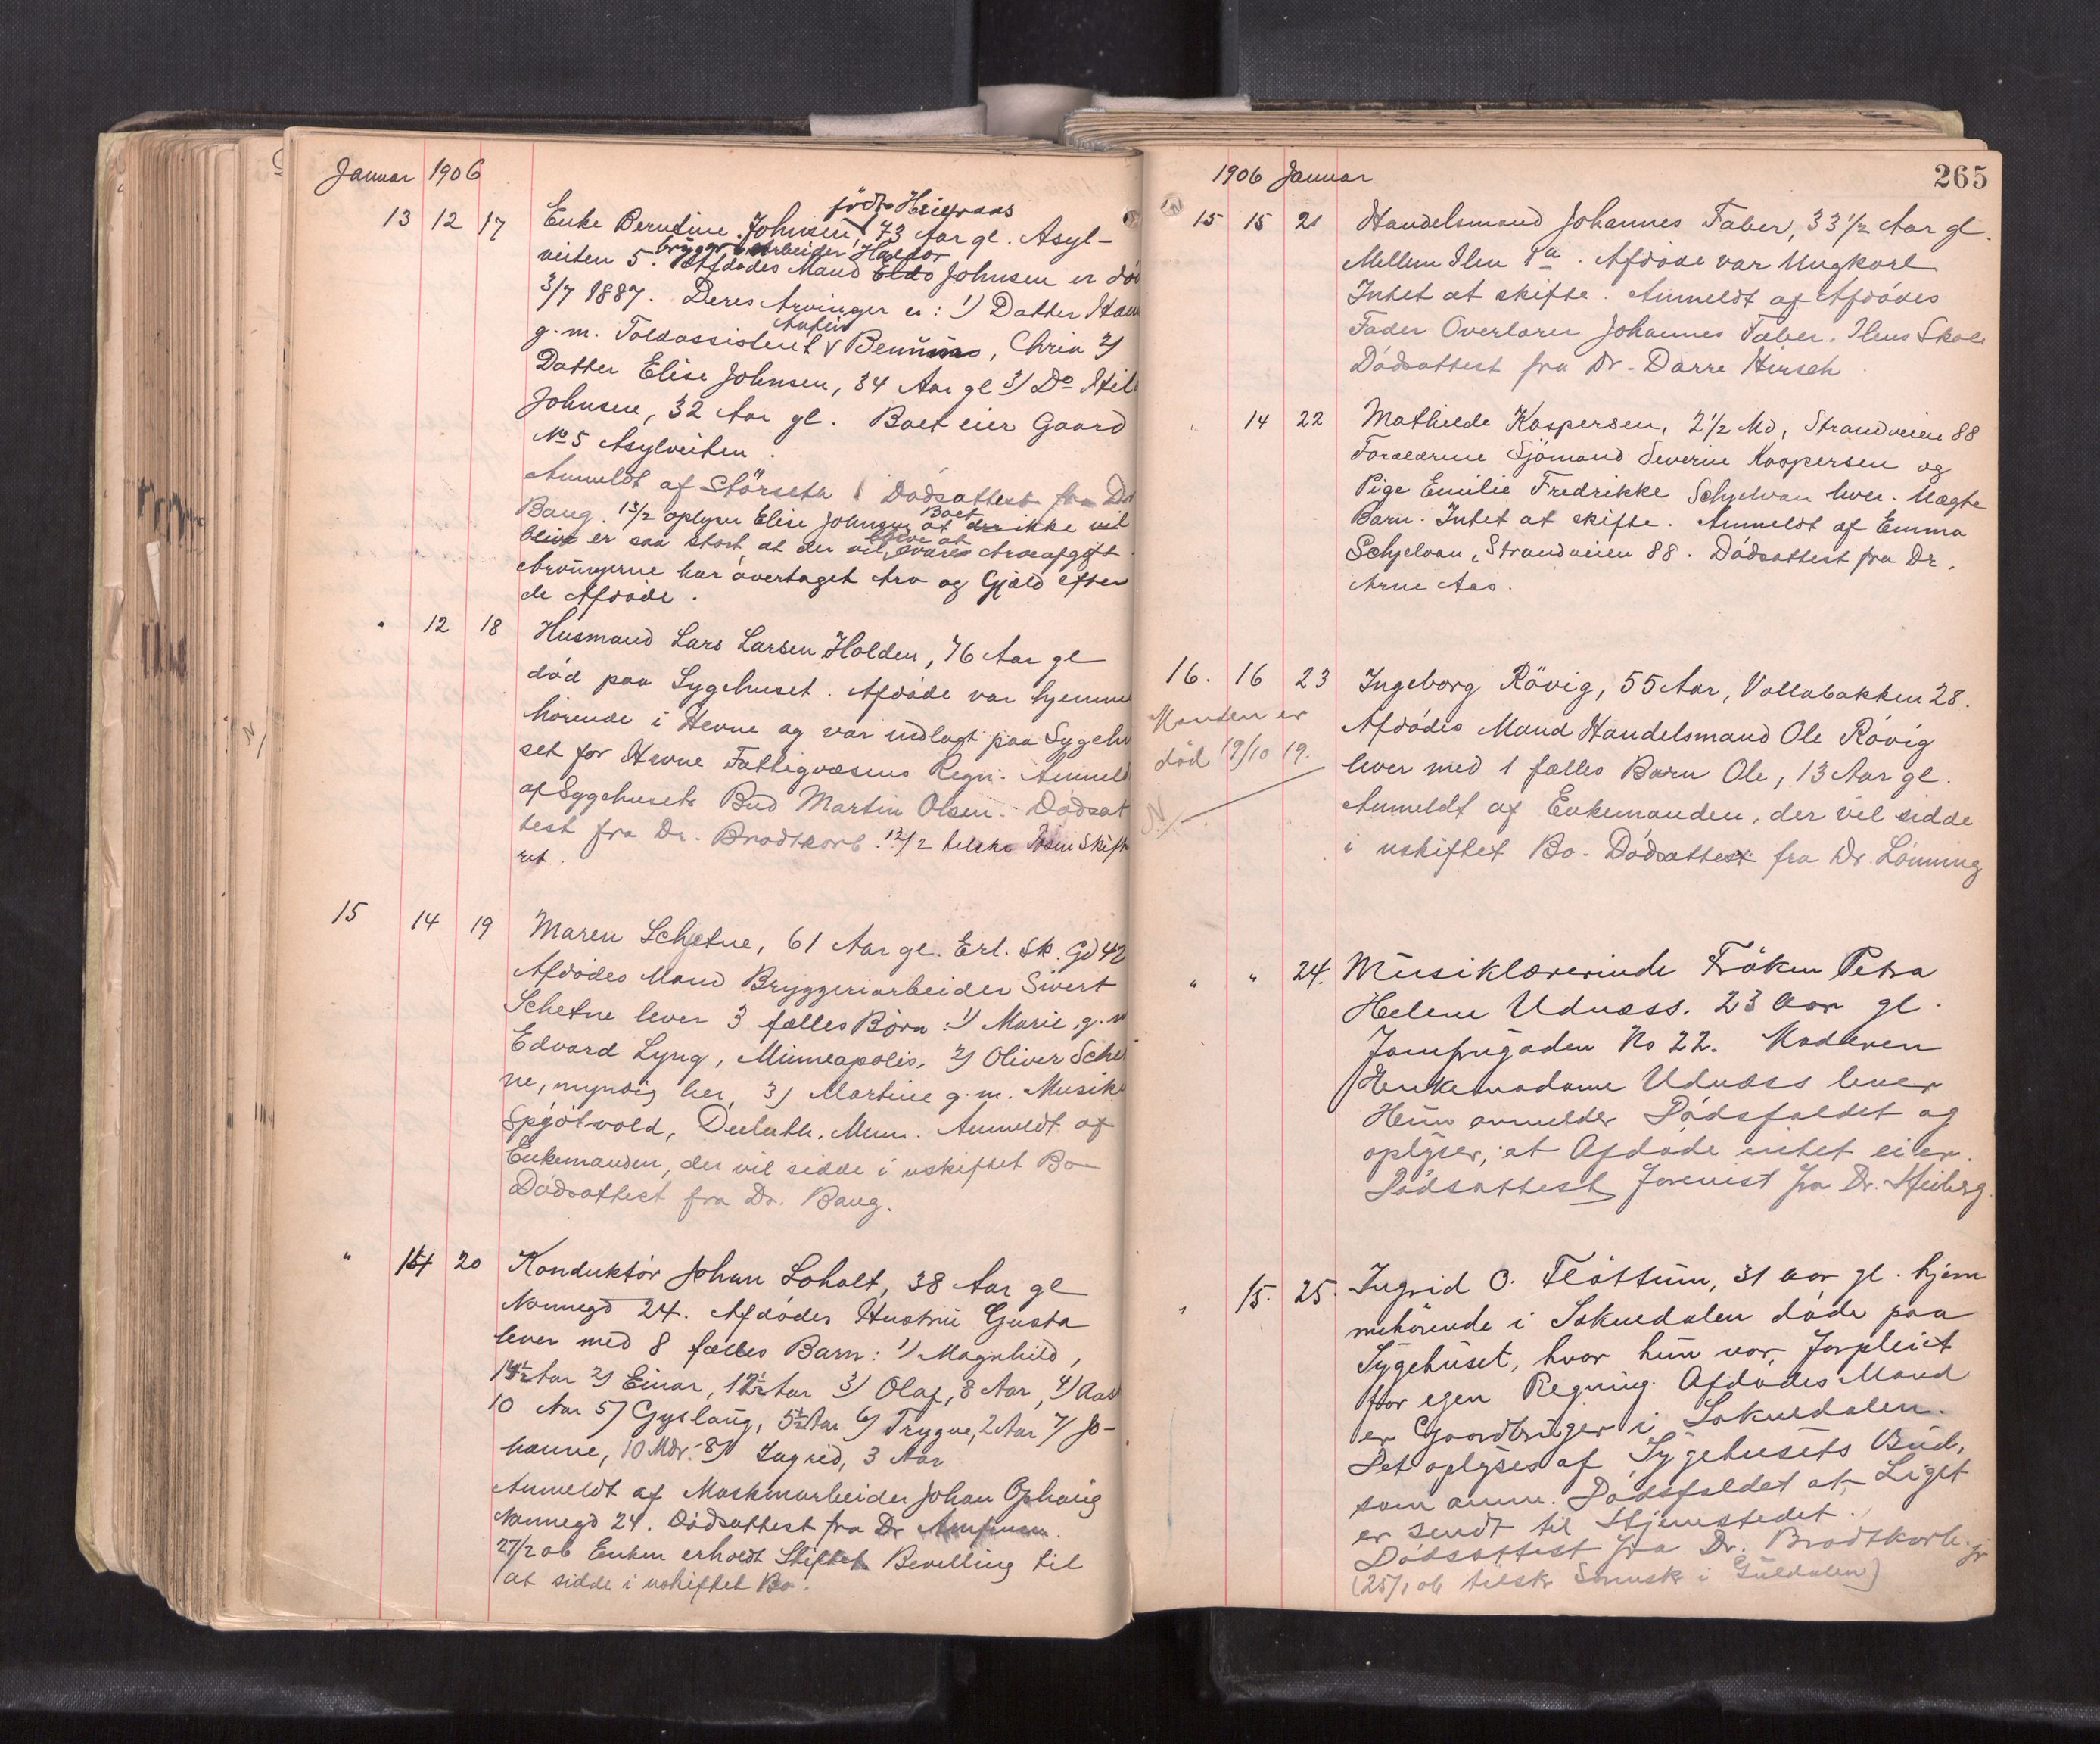 Januar 1906
13 12 17 Enke Berntine Johnsen, født 73 Aar gl. Asyl-
veiten 5. Afdødes Mand bryggeriarbeider Haldor Johnsen er død
3/7 1887. Deres Arvinger er: 1) Datter
g. m. Toldassistent, Chria 2)
Datter Elise Johnsen, 34 Aar gl 3) Do
Johnsen, 32 Aar gl. Boet eier Gaard
No 5 Asylveiten.
Anmeldt af Störseth. Dødsattest fra Dr
Baug. 13/2 oplyser Elise Johnsen at Boet ikke vil
blive er saa stort, at der vil blive at svare Arveafgift.
Arvingerne har overtaget Arv og Gjæld efter
de Afdøde.
" 12 18 Husmand Lars Larsen Holden, 76 Aar gl
død paa Sygehuset. Afdøde var hjemme
hørende i Hevne og var indlagt paa Sygehu
set for Hevne Fattigvæsens Regn. Anmeld
af Sygehusets Bud Martin Olsen. Dødsat
test fra Dr. Brodtkorb. 12/2 tilskr. Skifte
ret.
15 14 19 Maren Schetne, 61 Aar gl. Erl. Sk. Gd 42
Afdødes Mand Bryggeriarbeider Sivert
Schetne lever 3 fælles Børn: 1) Marie, g. m
Edvard Lyng, Minneapolis, 2) Oliver Schet
ne, myndig her, 3) Martine g. m. Musik
Spjøtvold, Duluth. Minn. Anmeldt af
Enkemanden, der vil sidde i uskiftet Bo
Dødsattest fra Dr. Baug.
" 14 20 Konduktør Johan Loholt, 38 Aar gl
Nonnegd 24. Afdødes Hustru Gusta
lever med 8 fælles Barn: 1) Magnhild,
14½ Aar 2) Einar, 12½ Aar 3) Olaf, 8 Aar, 4) Aas
10 Aar 5) Gyslaug, 5½ Aar 6) Trygve, 2 Aar 7) Jo-
hanne, 10 Mdr. 8) Ingrid, 3 Aar
Anmeldt af Maskinarbeider Johan Ophaug
Nonnegd 24. Dødsattest fra Dr
27/2 06 Enken erholdt Skiftet Bevilling til
at sidde i uskiftet Bo.
1906 Januar 265
15 15 21 Handelsmand Johannes Faber, 33 1/2 Aar gl.
Mellem Ilen 1a. Afdøde var Ungkarl
Intet at skifte. Anmeldt af Afdødes
Fader Overlærer Johannes Faber, Ilens Skole
Dødsattest fra Dr. Darre Hirsch.
" 14 22 Mathilde Kaspersen, 2 1/2 Md, Strandveien 88
Forældrene Sjömand Severin Kaspersen og
Pige Emilie Fredrikke Schjelvan lever. Uægte
Barn. Intet at skifte. Anmeldt af Emma
Schjelvan, Strandveien 88. Dødsattest fra Dr.
Arne Aas.
16. 16 23 Ingeborg Rövig, 55 Aar, Vollabakken 28.
Manden er
død 19/10 19.
Afdødes Mand Handelsmand Ole Rövig
lever med 1 fælles Barn Ole, 13 Aar gl.
Anmeldt af Enkemanden, der vil sidde
i uskiftet Bo. Dødsattest fra Dr. Lönning
" " 24. Musiklærerinde Fröken Petra
Helene Udnæss. 23 Aar gl.
Jomfrugaden No 22. Moderen
Enkemadame Udnæss lever
Hun anmelder Dødsfaldet og
oplyser, at Afdøde intet eier.
Dødsattest forevist fra Dr. Heiberg.
" 15. 25. Ingrid O. Flöttum, 31 Aar gl. hjem
mehörende i Soknedalen døde paa
Sygehuset, hvor hun var forpleiet
for egen Regning. Afdødes Mand
er Gaardbruger i Soknedalen.
Det oplyses af Sygehusets Bud,
som anm. Dødsfaldet at Liget
er sendt til Hjemstedet.
Dødsattest fra Dr. Brodtkorb. jr
(25/1 06 tilskr Sorensk i Guldalen)